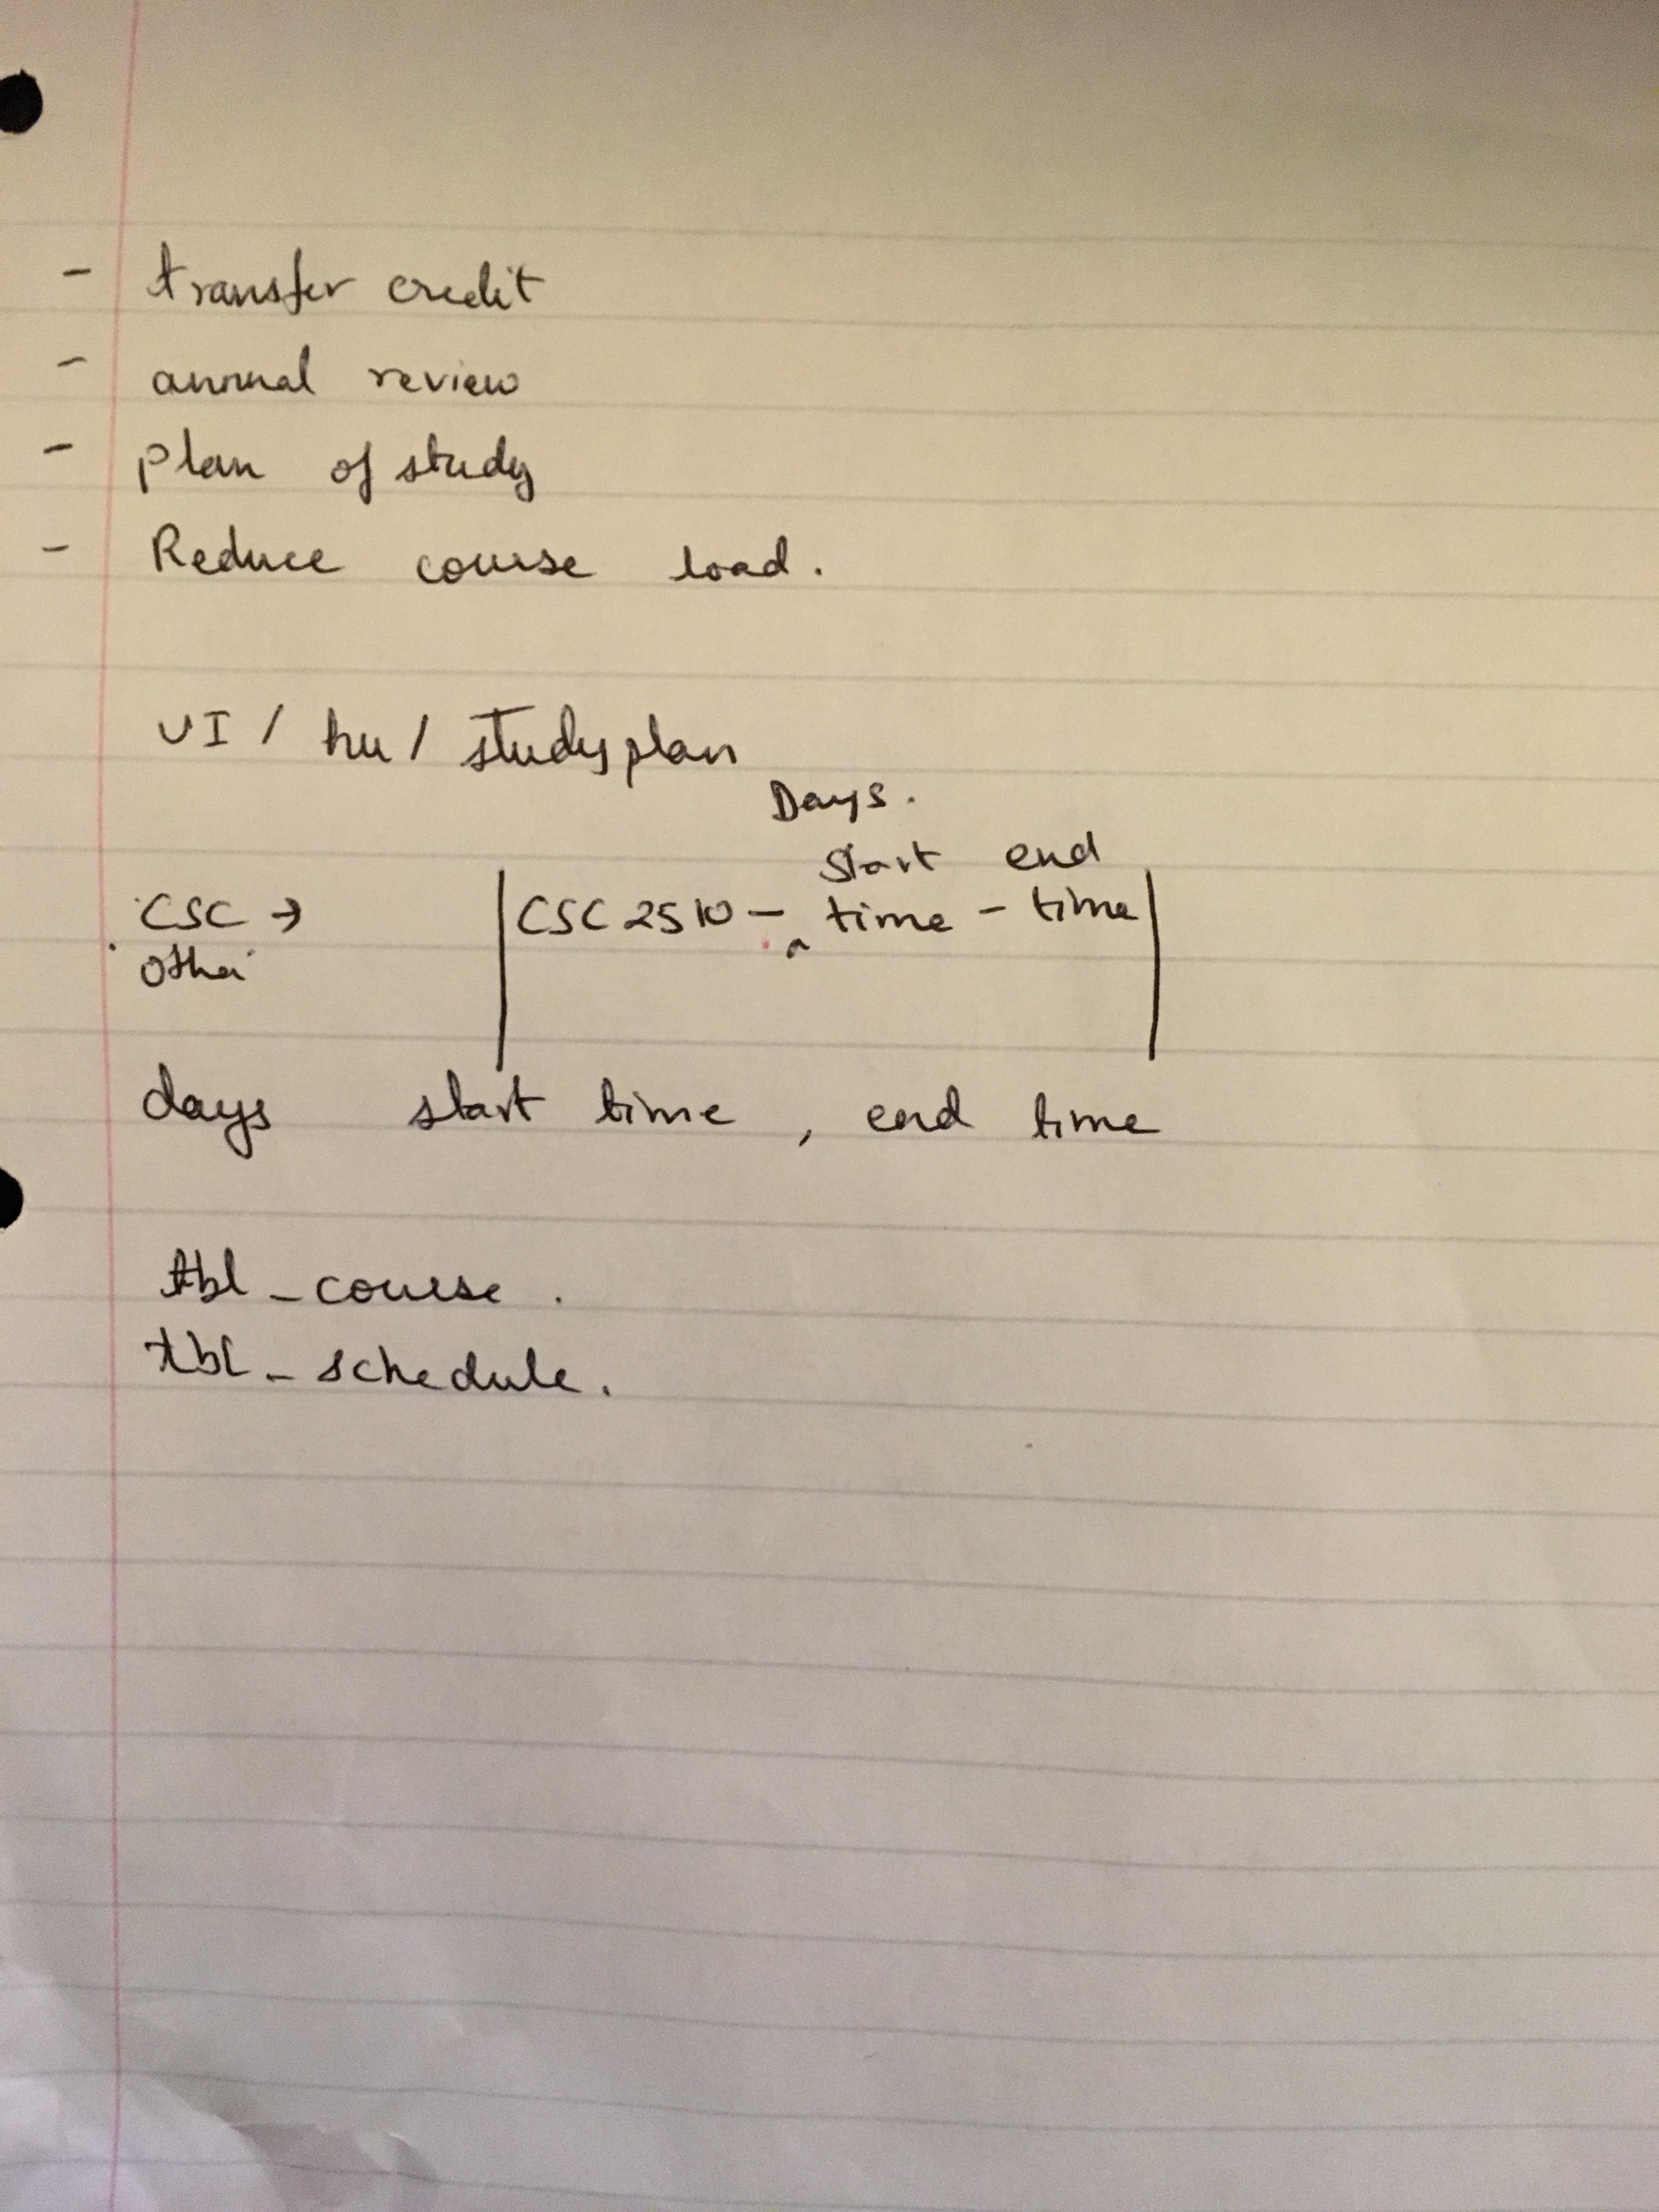 - transfer credit
- annual review
- plan of study
- Reduce course load.
UI / hu / studyplan
Days.
start end
CSC → CSC 2510 - time - time
Other
days start time , end time
tbl_course.
tbl_schedule.